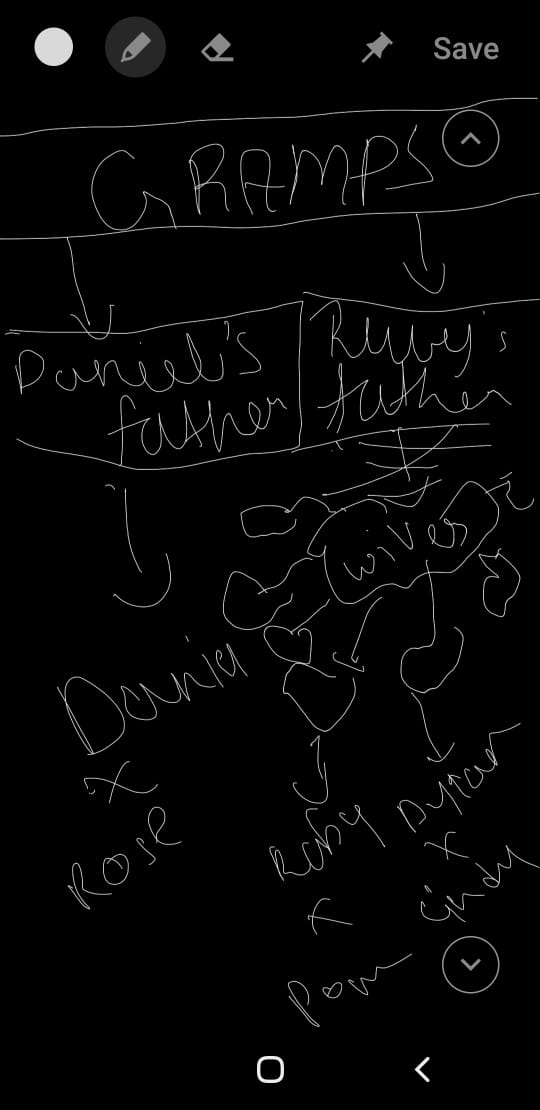 Save
GRAMPS
Daniel's
father
Ruby's
father
wives
Daniel
x
Rose
Ruby
x
Dylan
x
Cindy
Pom